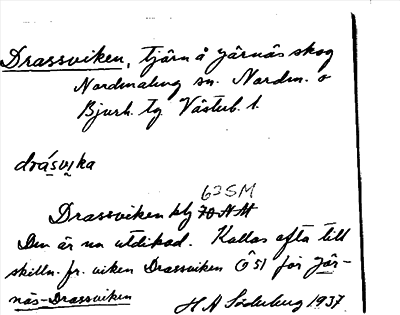 Drassviken, tjärn å Järnäs skog
Nordmaling sn. Nordm. o
Bjurh. tg Västerb. l.
drásvıka
63SM
Drassviken blz 70 NM
Den är nu utdikad. Kallas ofta till
skilln. fr. viken Drassviken Ö 51 för Jär-
näs-Drassviken
H A Söderberg 1937